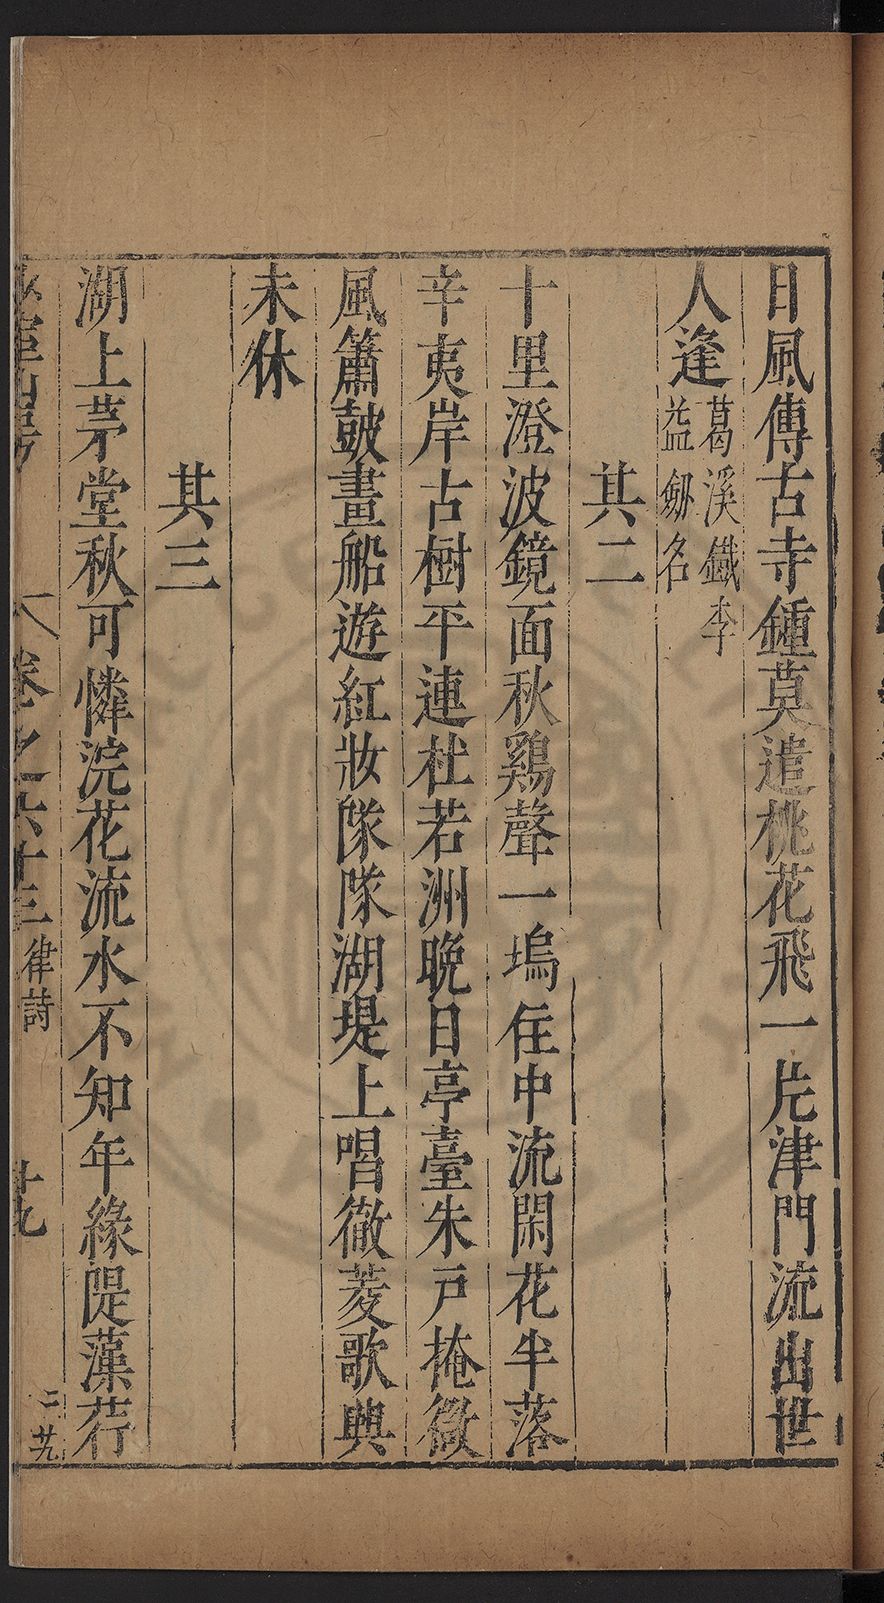 日風傳古寺鍾莫遣桃花飛一片津門流出世
人逢葛溪鐵李
益劒名
其二
十里澄波鏡面秋鷄聲一塢住中流閑花半落
辛夷岸古樹平連杜若洲晚日亭臺朱戸掩微
風簫鼓畫船遊紅妝隊隊湖堤上唱徹菱歌興
未休
其三
湖上茅堂秋可憐浣花流水不知年緣隄藻荇
卷之六十三 律詩 廿九
二 廿九